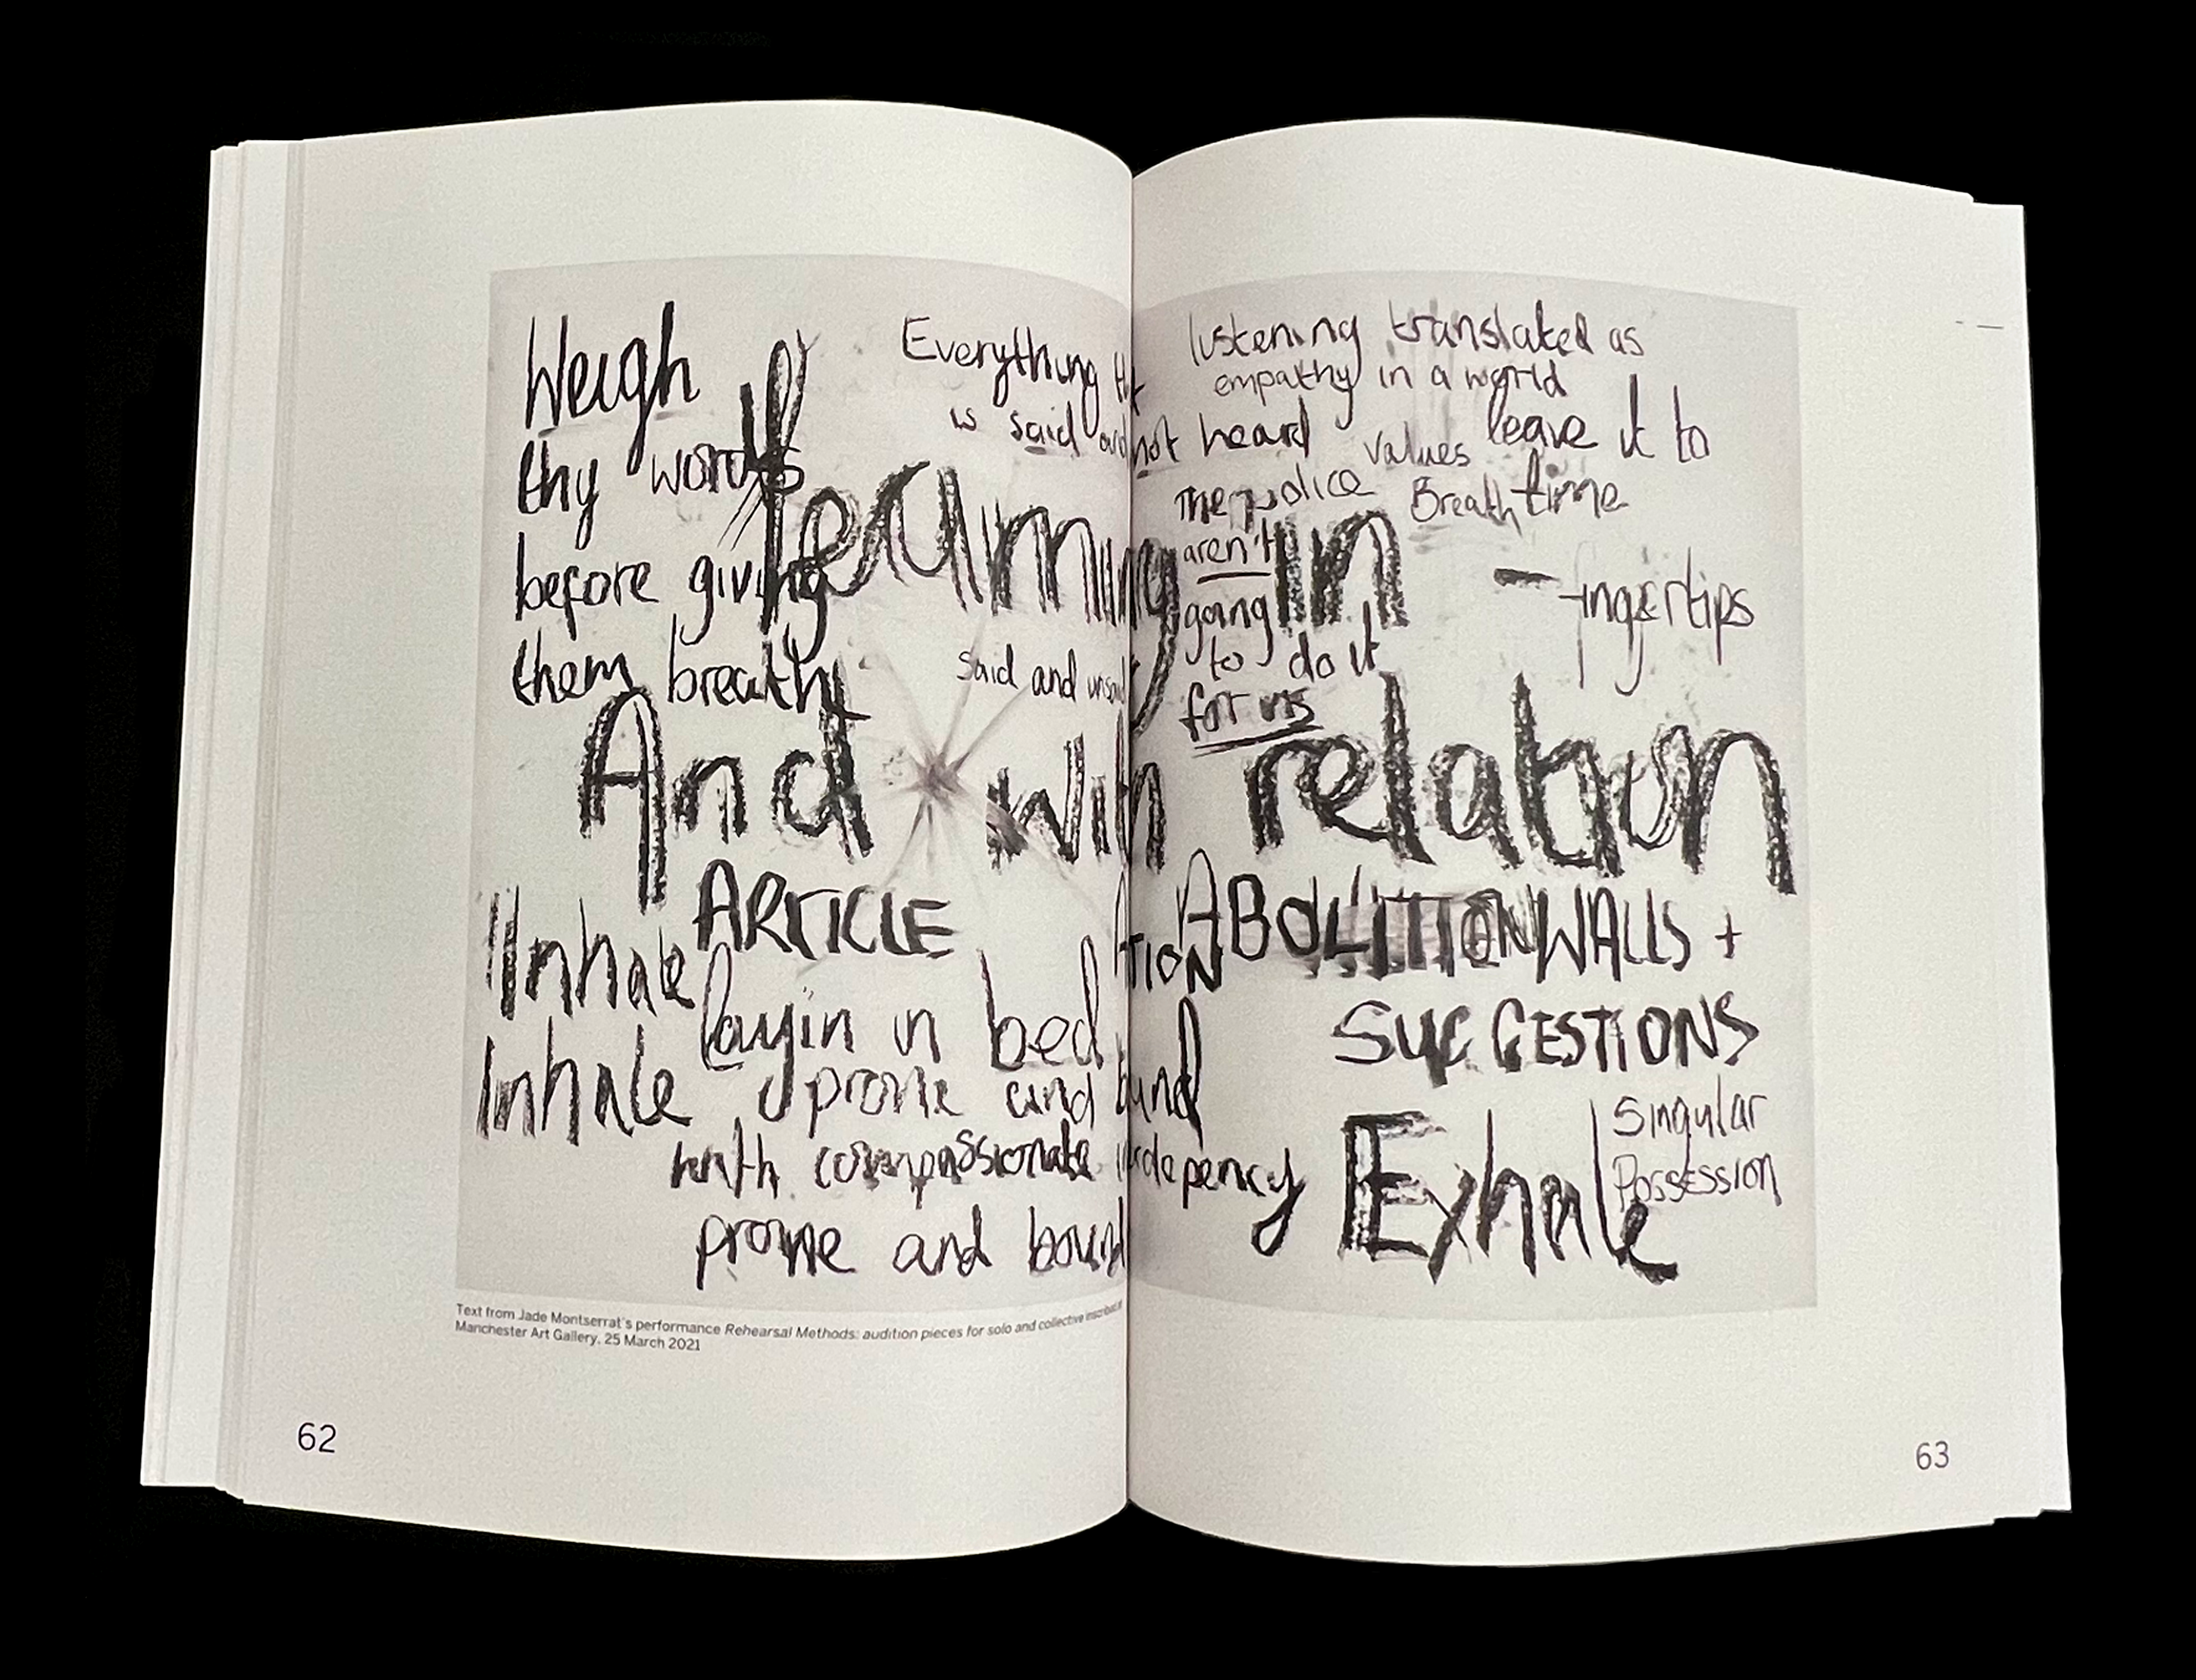 Weigh
thy words
before giving
them breath
Everything
is said and not heard
listening translated as
empathy in a world
values leave it to
Breath time
The police
aren't
going
to do it
for us
learning in
fingertips
said and
And with relation
ARTICLE
ABOLITION WALLS +
TION
SUGGESTIONS
Inhale
Inhale
layin in bed
prone and
with compassionate
prone and bound
Exhale
Singular
Possession
Text from Jade Montserrat's performance Rehearsal Methods: audition pieces for solo and collective
Manchester Art Gallery, 25 March 2021
62
63